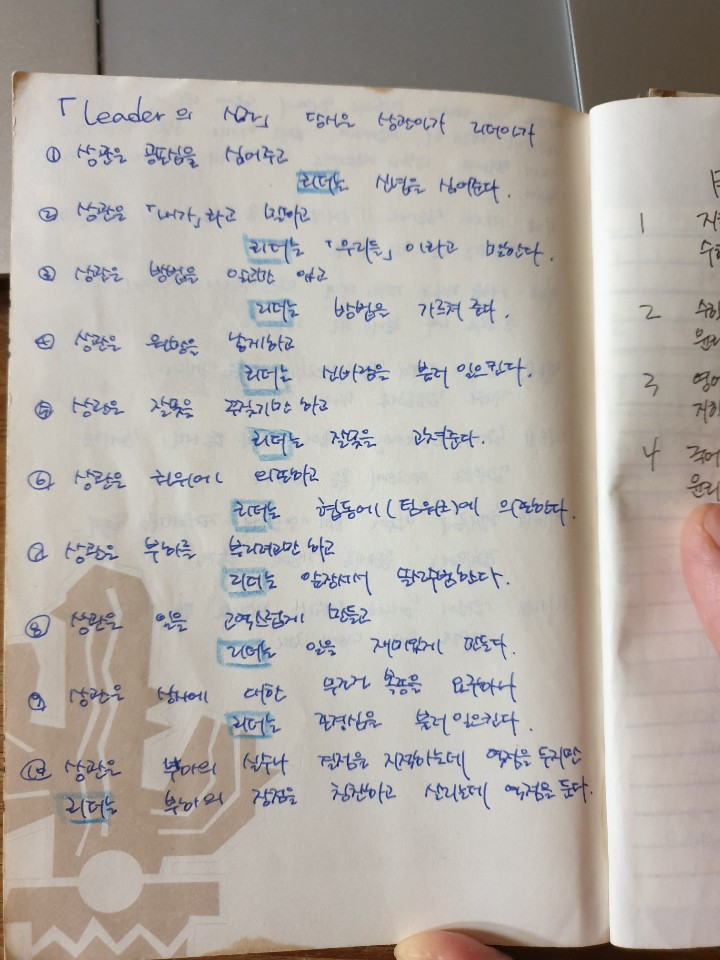 「Leader의 당신은 상관인가 리더인가
① 상관은 공포심을 심어주고
리더는 신념을 심어준다.
② 상관은 「내가」라고 말하고
리더는 「우리들」이라고 말한다.
③ 상관은 방법을 알고만 있고
리더는 방법을 가르쳐 준다.
④ 상관은 원망을 낳게하고
리더는 신바람을 불러 일으킨다.
⑤ 상관은 잘못을 꾸짖기만 하고
리더는 잘못을 고쳐준다.
⑥ 상관은 권위에 의또하고
리더는 협동에(팀워크)에 의또한다.
⑦ 상관은 부하를 부리려고만 하고
리더는 앞장서서 솔선수범한다.
⑧ 상관은 일을 고역스럽게 만들고
리더는 일을 재미있게 만든다.
⑨ 상관은 대한 무조건 복종을 요구하나
리더는 존경심을 불러 일으킨다.
⑩ 상관은 부하의 실수나 결점을 지적하는데 역점을 두지만
리더는 부하의 장점을 칭찬하고 살리는데 역점을 둔다.
1
2
3 영어
4 국어